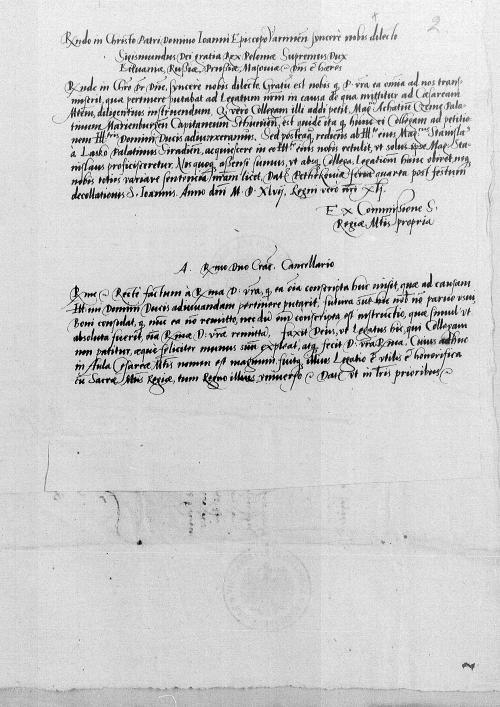 2
Rndo in Christo Patri Domino Ioanni Episcopo Varmien syncere nobis dilecto
Sigismundus Dei gratia Rex Poloniæ Supremus Dux
Lituaniæ, Russiæ, Prussiæ, Masouiæ Dns et hæres
Rnde in Chro Pr Dne, syncere nobis dilecte. Gratu est nobis q D. vra ea omia ad nos trans
miserit, quæ pertinere putabat ad Legatum nrm in causa qua mittitur ad Cæsaream
Mttem, diligentius instruendum. Q vero Collegam illi addi petit Mag Achatiu Czeme Pala
tinum Marienburgen Capitaneum Sthumen, est quide ita q hunc ei Collegam ad petitio
nem Ill Domini Ducis adiunxeramus. Sed posteaq rediens ab Ill eius Mag Stanisla
a Lasko Palatinus Siradien, acquiescere in eo Ill eius nobis retulit, vt solus Mag Sta
nislaus proficisceretur. Nos quoq assensi sumus, vt absq Collega Legationi hanc obiret, neq
nobis toties variare sententiam nram licet. Dat Petricouiæ feria quarta post festum
decollationis S. Ioannis. Anno dni M. D. Xlvij. Regni vero nri xlj.
Ex Commissione S.
Regiæ Mtis propria
A. Rmo Dno Crac. Cancellario
Rme Recte factum a Rma D. vra, q ea oia conscripta huc misit, quæ ad causam
Ill mi Domini Ducis adiuuandam pertinere putarit, futura sut hæc nob no paruo vsui,
Boni consulat, q nuc ea no remitto, nec du em conscripta est instructio, quæ simul vt
absoluta fuerit, oia Rmæ D. vræ remittã, faxit Deus, vt Legatus hic, qui Collegam
non patitur, æque feliciter munus suu expleat, atq fecit D. vra Rma. Cuius adhuc
in Aula Cæsareæ Mtis nomen est magnum, fuitq illius Legatio et vtilis et honorifica
cu Sacræ Mti Regiæ, tum Regno illius vniuerso Dat vt in lris prioribus